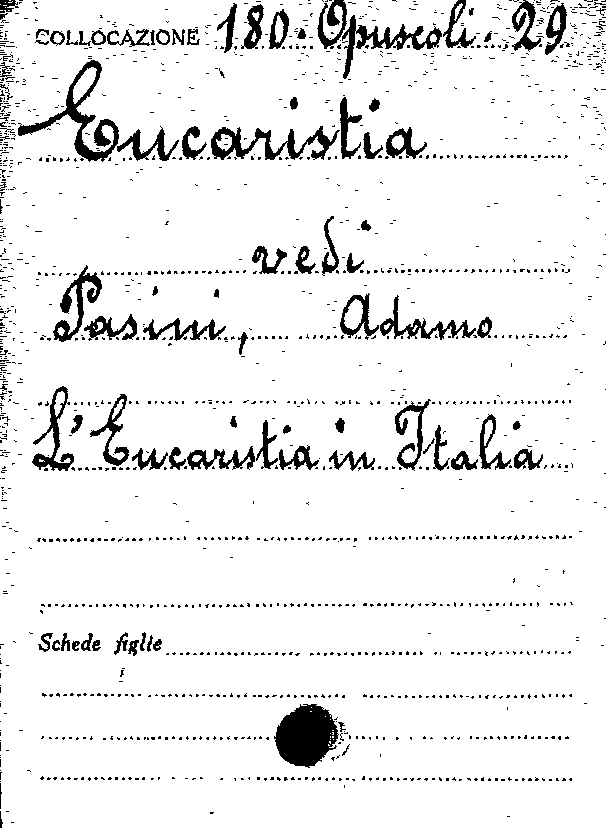 COLLOCAZIONE 180. Opuscoli. 29
Eucaristia
vedi
Pasini, Adamo
L'Eucaristia in Italia
Schede figlie